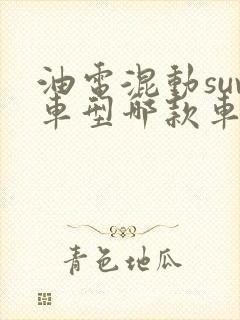 油電混動suv
車型哪款車
青色地瓜